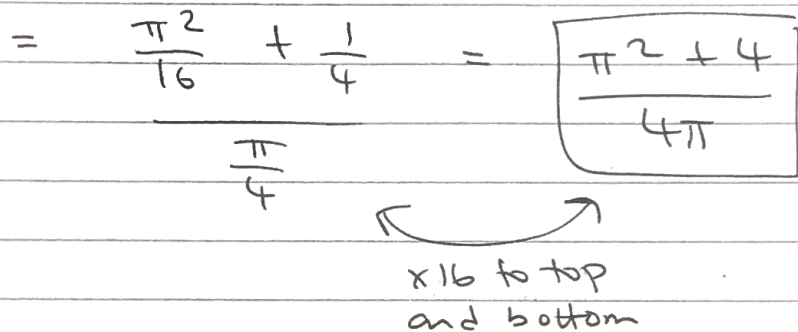 = (π²/16 + 1/4) / (π/4) = (π² + 4) / 4π
×16 to top
and bottom